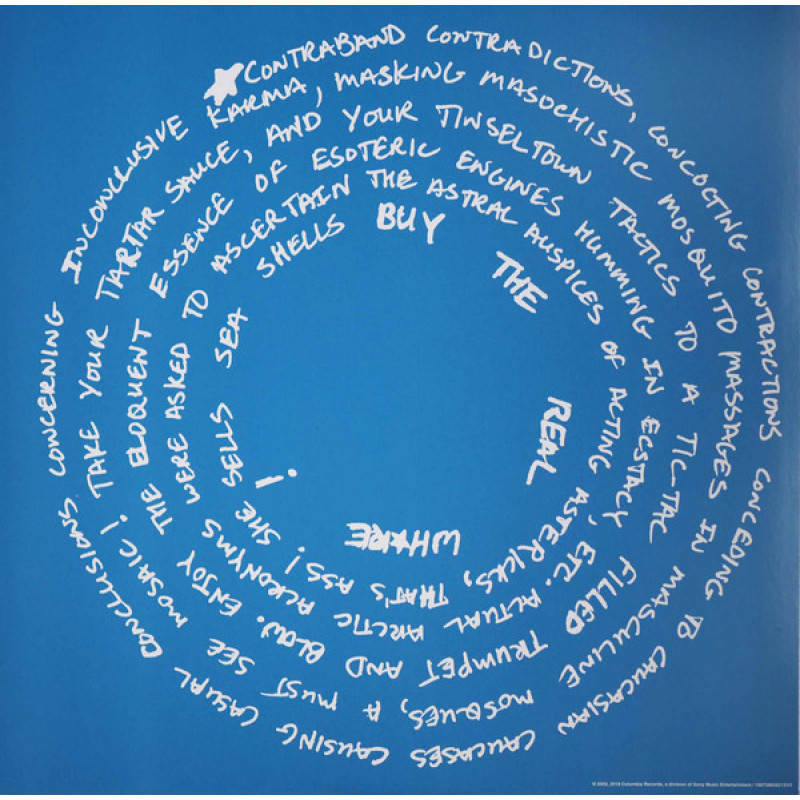 CONTRABAND CONTRADICTIONS, CONCOCTING CONTRACTIONS CONCEDING TO CAUCASIAN CAUCASES CAUSING CASUAL CONCLUSIONS CONCERNING INCONCLUSIVE
KARMA, MASKING MASOCHISTIC MOSQUITO MASSAGES IN MASCULINE MOSQUES, A MUST SEE MOSAIC! TAKE YOUR TARTAR SAUCE,
AND YOUR TINSELTOWN TACTICS TO A TIC-TAC FILLED TRUMPET AND BLOW. ENJOY THE ELOQUENT ESSENCE
OF ESOTERIC ENGINES HUMMING IN ECSTACY, ETC. ACTUAL ARCTIC ACRONYMS WERE ASKED TO ASCERTAIN
THE ASTRAL AUSPICES OF ACTING ASTERICKS, THAT'S ASS! SHE SELLS SEA SHELLS
BUY THE REAL WHARE !
Columbia Records, a division of Sony Music Entertainment